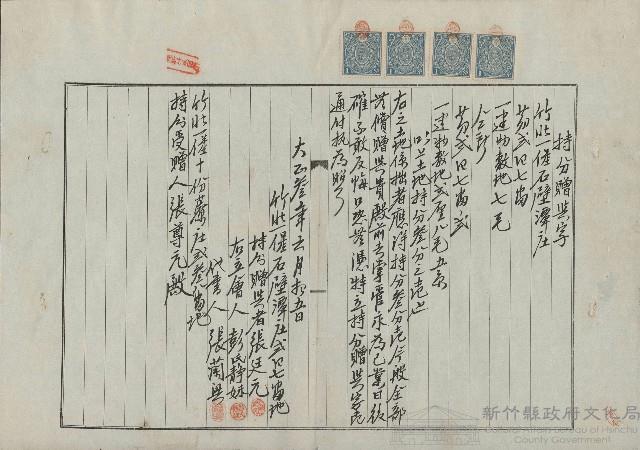 持分贈與字
竹北一堡石壁潭庄
芎弍〇七番
一建物敷地七毛
仝所
芎弍〇七番弍
一建物敷地弍厘八毛五糸
以上土地持分叁分之壱也
右之土地係拙者應得持分叁分壱今般全部
無償贈與貴殿前去掌管永為己業日後
確不敢反悔口恐無憑特立持分贈與字壱
通付执為照
大正叁年五月拾五日
竹北一堡石壁潭庄弍〇七番地
持分贈與者 張廷元
右立會人 彭氏靜妹
代書人 張蘭興
竹北一堡十份寮庄弍叁番地
持分受贈人張尊元殿
新竹縣政府文化局
Cultural Affairs Bureau of Hsinchu
County Government